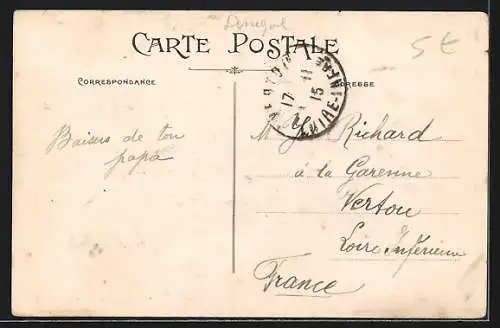 Senegal
5 €
CARTE POSTALE
CORRESPONDANCE
ADRESSE
17 11
15
Baisers de ton
papa
M Richard
à la Garenne
Vertou
Loire Inférieure
France